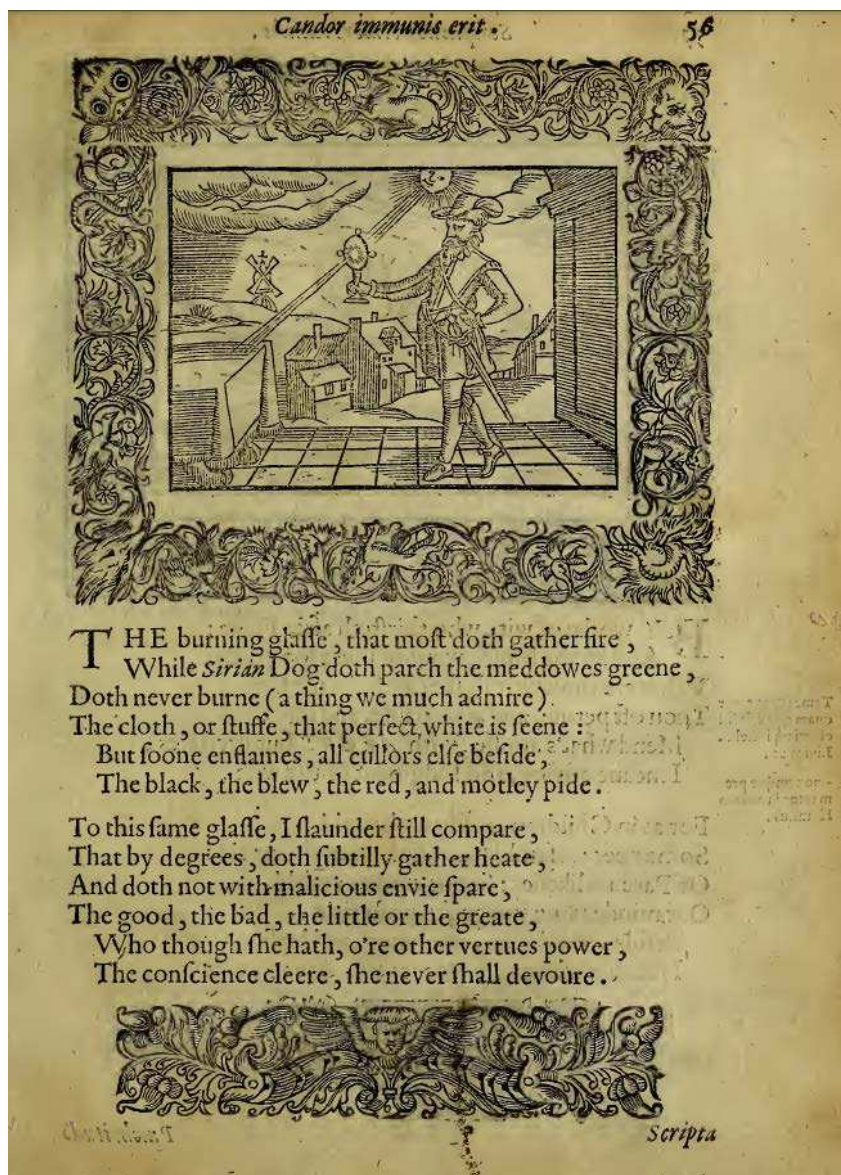 Candor immunis erit. 56
THE burning glaſſe, that moſt doth gather fire,
While Sirian Dog doth parch the meddowes greene,
Doth never burne (a thing we much admire)
The cloth, or ſtuffe, that perfect white is ſeene:
But ſoone enflames, all cullors elſe beſide,
The black, the blew, the red, and motley pide.
To this ſame glaſſe, I ſlaunder ſtill compare,
That by degrees, doth ſubtilly gather heate,
And doth not with malicious envie ſpare,
The good, the bad, the little or the greate,
Who though ſhe hath, o're other vertues power,
The conſcience cleere, ſhe never ſhall devoure.
Scripta